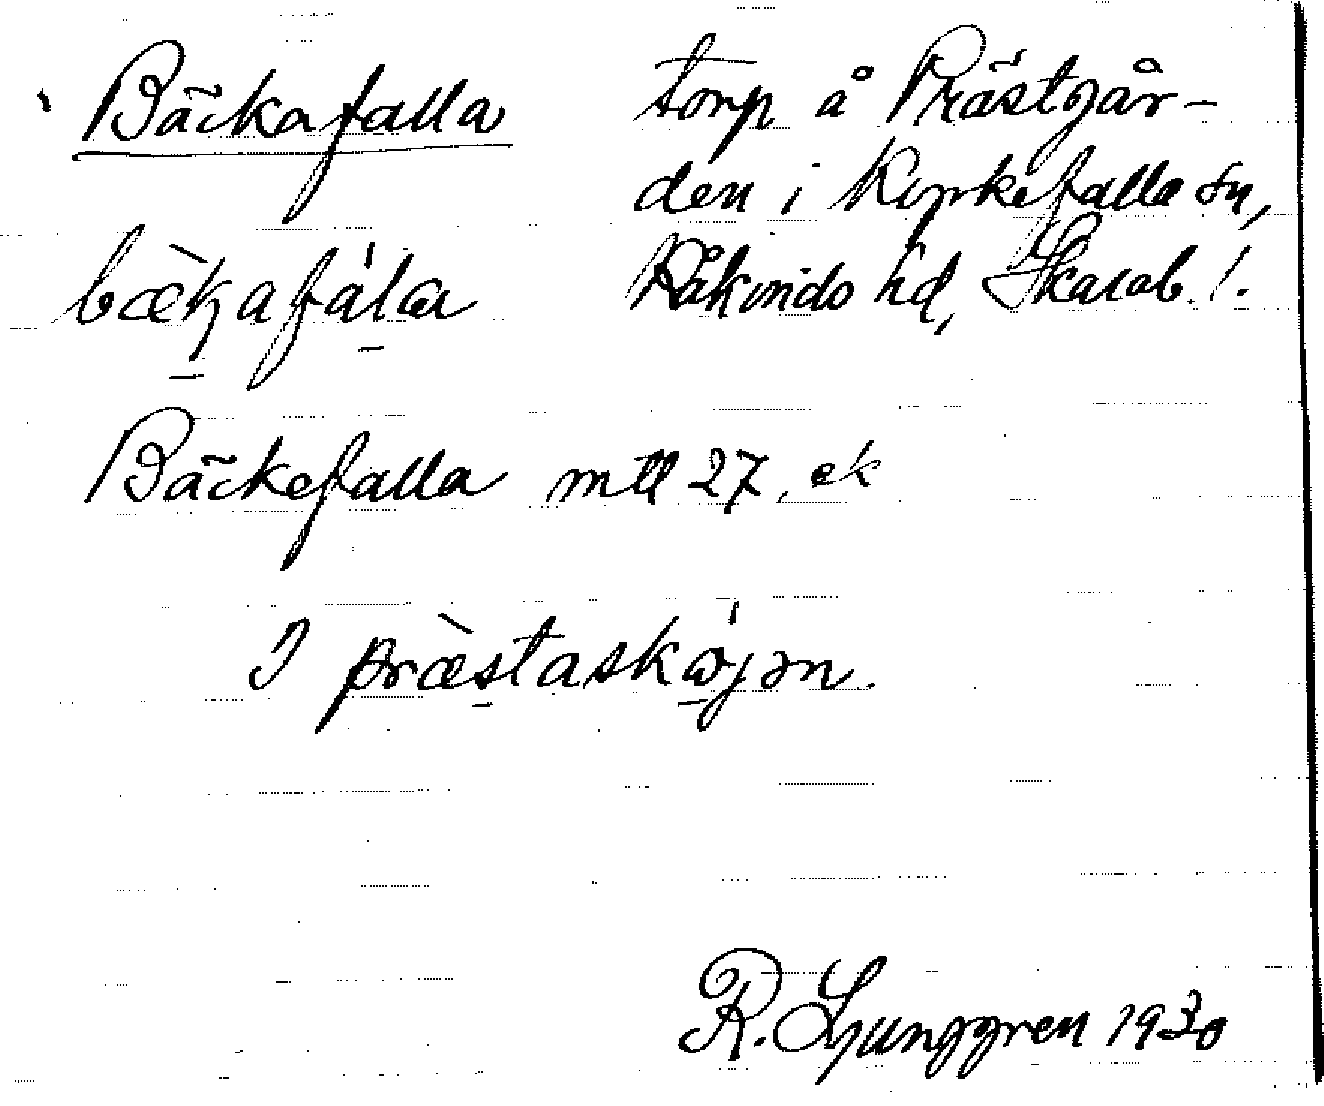 Bäckafalla torp å Prästgår-
den i Kyrkefalla sn,
bækafála Kåkinds hd, Skarab. l.
Bäckefalla mtl 27, ek
I præstaskɷjən.
R. Ljunggren 1930